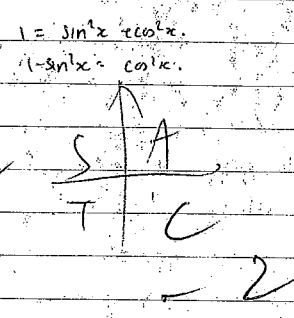 1 = sin²x + cos²x.
1-sin²x = cos²x.
S A
T C
- 2